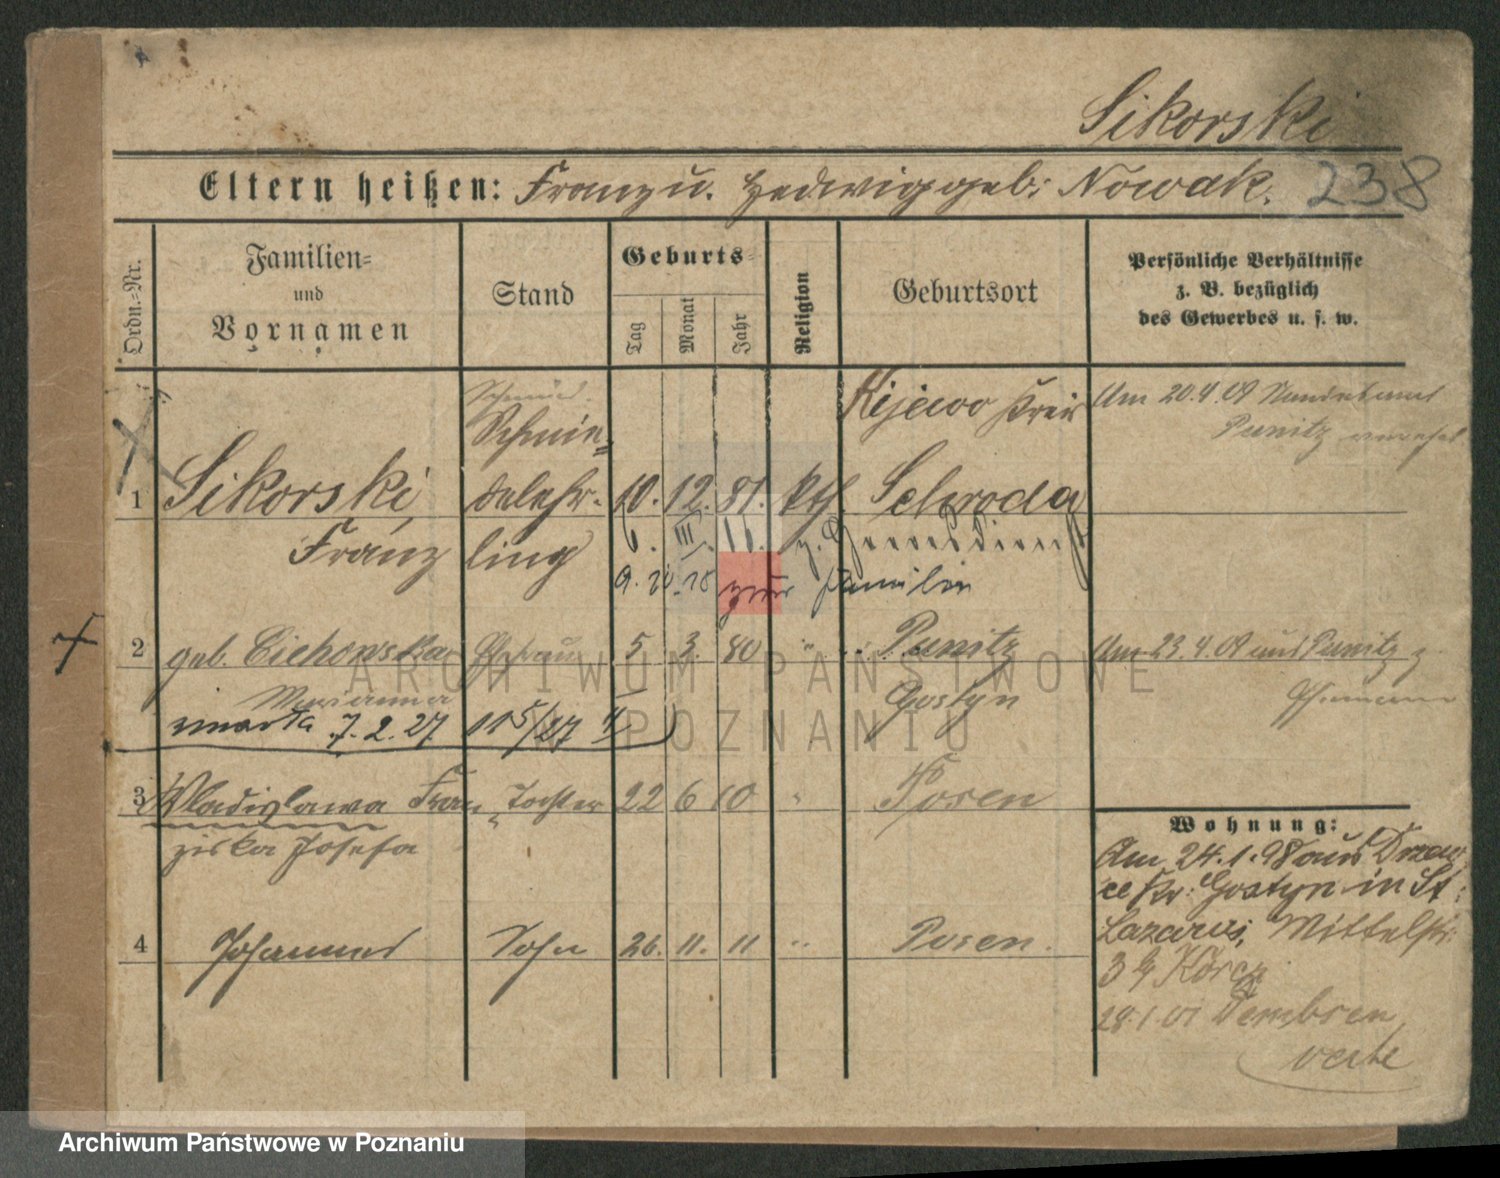 Sikorski
Eltern heißen: Franz u. Hedwig geb. Nowak.
238
Ordn.=Nr.
Familien=
und
Vornamen
Stand
Geburts=
Tag
Monat
Jahr
Religion
Geburtsort
Persönliche Verhältnisse
z. B. bezüglich
des Gewerbes u. s. w.
Schmied
Kijewo Kreis
Am 20.4.09 Standesamt
Schmie=
Punitz
1 Sikorski, delehr- 10. 12. 81. kth. Schroda
Franz ling 6. III. 15. z. Heeresdienst
9. 10. 18 zur Familie
2 geb. Cichowska Ehefrau 5 3. 80 " Punitz
Am 23.4.09 aus Punitz z.
Marianna
Gostyn
Ehemann
zmarła 7.2.27 11 5/27
3 Wladislawa Fran= Tochter 22 6 10 " Posen
ziska Josefa
Wohnung:
Am 24.1.98 aus Drzew
ce Kr: Gostyn in St:
4 Johannes Sohn 26. 11. 11 " Posen.
Lazarus, Mittelstr:
3 b/ Körcz
28.1.01 Dembsen
verte
ARCHIWUM PAŃSTWOWE
W POZNANIU
Archiwum Państwowe w Poznaniu